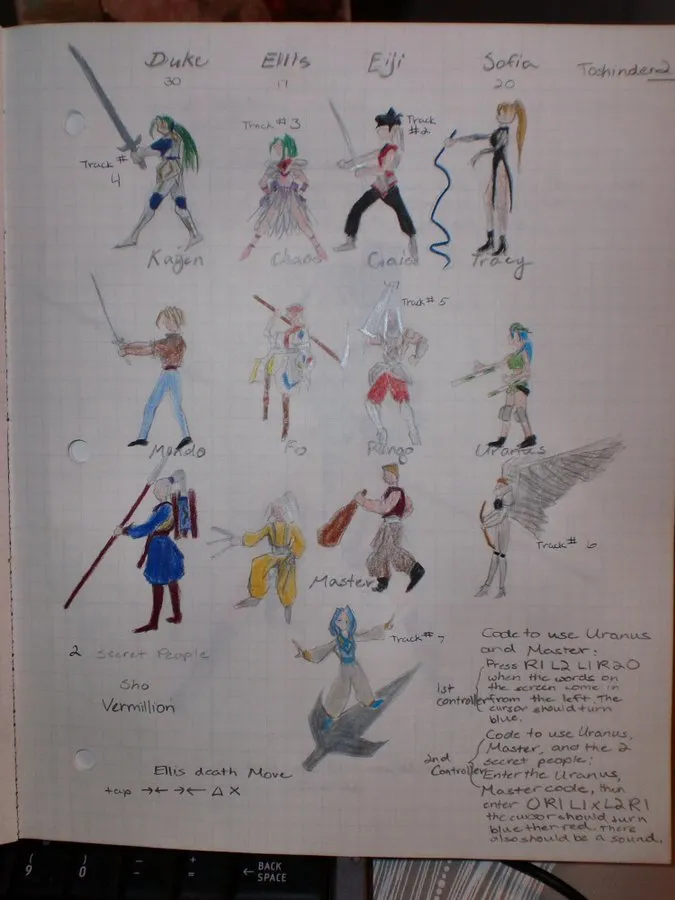 Duke Ellis Eiji Sofia Toshinden 2
30 17 20
Track #3 Track #2
Track # 4
Kayin Chaos Gaia Tracy
Track #5
Mondo Fo Rungo Uranus
Track # 6
Master
Track #7
2 Secret People
Sho
Vermillion
Code to use Uranus
and Master:
1st Controller
Press R1 L2 L1 R2 O
when the words on
the screen come in
from the left. The
cursor should turn
blue.
Code to use Uranus,
Master, and the 2
secret people:
2nd Controller
Enter the Uranus,
Master code, then
enter O R1 L1 x L2 R1
the cursor should turn
blue then red. There
also should be a sound.
Ellis death Move
tap →← →← △ X
( 9
) 0
– -
+ =
← BACK SPACE